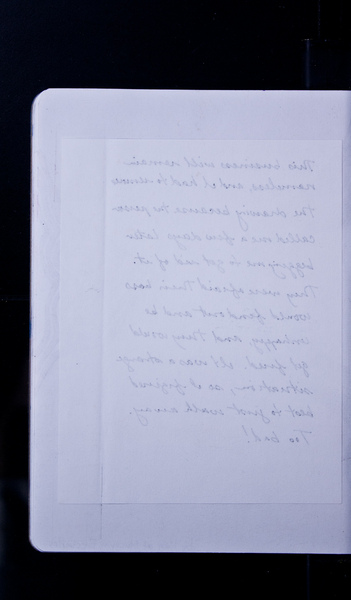 This business will remain
nameless, and I had to remove
the drawing because the person
called me a few days later
begging me to get rid of it.
They were afraid their boss
would find out and be
unhappy and they would
get fired. It was a strange
situation, so I figured
best to just walk away.
Too bad!